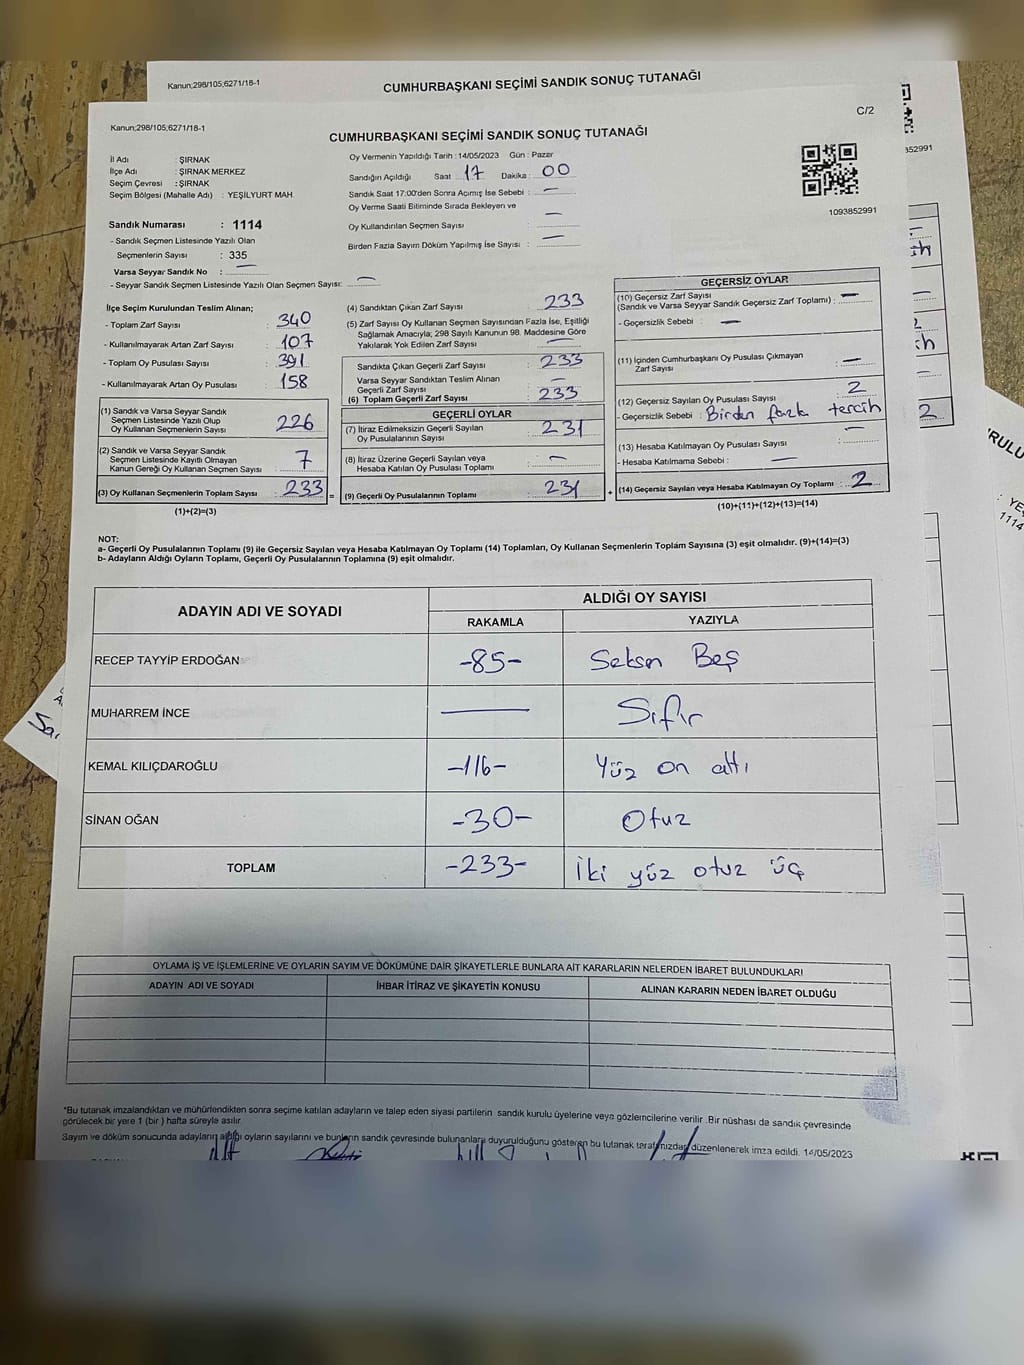 Kanun;298/105;6271/18-1
CUMHURBAŞKANI SEÇİMİ SANDIK SONUÇ TUTANAĞI
C/2
Kanun;298/105;6271/18-1
CUMHURBAŞKANI SEÇİMİ SANDIK SONUÇ TUTANAĞI
852991
İl Adı : ŞIRNAK
İlçe Adı : ŞIRNAK MERKEZ
Seçim Çevresi : ŞIRNAK
Seçim Bölgesi (Mahalle Adı) : YEŞİLYURT MAH.
Oy Vermenin Yapıldığı Tarih :14/05/2023 Gün : Pazar
Sandığın Açıldığı Saat 17 Dakika : 00
Sandık Saat 17:00'den Sonra Açımış İse Sebebi : —
Oy Verme Saati Bitiminde Sırada Bekleyen ve
Oy Kullandırılan Seçmen Sayısı : —
Birden Fazla Sayım Döküm Yapılmış İse Sayısı : —
1093852991
Sandık Numarası : 1114
- Sandık Seçmen Listesinde Yazılı Olan
Seçmenlerin Sayısı : 335
Varsa Seyyar Sandık No : —
- Seyyar Sandık Seçmen Listesinde Yazılı Olan Seçmen Sayısı: —
İlçe Seçim Kurulundan Teslim Alınan;
- Toplam Zarf Sayısı : 340
- Kullanılmayarak Artan Zarf Sayısı : 107
- Toplam Oy Pusulası Sayısı : 391
- Kullanılmayarak Artan Oy Pusulası : 158
(1) Sandık ve Varsa Seyyar Sandık
Seçmen Listesinde Yazılı Olup
Oy Kullanan Seçmenlerin Sayısı : 226
(2) Sandık ve Varsa Seyyar Sandık
Seçmen Listesinde Kayıtlı Olmayan
Kanun Gereği Oy Kullanan Seçmen Sayısı : 7
(3) Oy Kullanan Seçmenlerin Toplam Sayısı : 233 =
(1)+(2)=(3)
(4) Sandıktan Çıkan Zarf Sayısı : 233
(5) Zarf Sayısı Oy Kullanan Seçmen Sayısından Fazla İse, Eşitliği
Sağlamak Amacıyla; 298 Sayılı Kanunun 98. Maddesine Göre
Yakılarak Yok Edilen Zarf Sayısı : —
Sandıkta Çıkan Geçerli Zarf Sayısı : 233
Varsa Seyyar Sandıktan Teslim Alınan
Geçerli Zarf Sayısı : —
(6) Toplam Geçerli Zarf Sayısı : 233
GEÇERLİ OYLAR
(7) İtiraz Edilmeksizin Geçerli Sayılan
Oy Pusulalarının Sayısı : 231
(8) İtiraz Üzerine Geçerli Sayılan veya
Hesaba Katılan Oy Pusulaları Toplamı : —
(9) Geçerli Oy Pusulalarının Toplamı : 231 +
GEÇERSİZ OYLAR
(10) Geçersiz Zarf Sayısı
(Sandık ve Varsa Seyyar Sandık Geçersiz Zarf Toplamı) : —
- Geçersizlik Sebebi : —
(11) İçinden Cumhurbaşkanı Oy Pusulası Çıkmayan
Zarf Sayısı : —
(12) Geçersiz Sayılan Oy Pusulası Sayısı : 2
- Geçersizlik Sebebi : Birden fazla tercih
(13) Hesaba Katılmayan Oy Pusulası Sayısı : —
- Hesaba Katılmama Sebebi : —
(14) Geçersiz Sayılan veya Hesaba Katılmayan Oy Toplamı : 2
(10)+(11)+(12)+(13)=(14)
NOT:
a- Geçerli Oy Pusulalarının Toplamı (9) ile Geçersiz Sayılan veya Hesaba Katılmayan Oy Toplamı (14) Toplamları, Oy Kullanan Seçmenlerin Toplam Sayısına (3) eşit olmalıdır. (9)+(14)=(3)
b- Adayların Aldığı Oyların Toplamı, Geçerli Oy Pusulalarının Toplamına (9) eşit olmalıdır.
ADAYIN ADI VE SOYADI
ALDIĞI OY SAYISI
RAKAMLA YAZIYLA
RECEP TAYYİP ERDOĞAN -85- Seksen Beş
MUHARREM İNCE — Sıfır
KEMAL KILIÇDAROĞLU -116- Yüz on altı
SİNAN OĞAN -30- Otuz
TOPLAM -233- İki yüz otuz üç
OYLAMA İŞ VE İŞLEMLERİNE VE OYLARIN SAYIM VE DÖKÜMÜNE DAİR ŞİKAYETLERLE BUNLARA AİT KARARLARIN NELERDEN İBARET BULUNDUKLARI
ADAYIN ADI VE SOYADI İHBAR İTİRAZ VE ŞİKAYETİN KONUSU ALINAN KARARIN NEDEN İBARET OLDUĞU
*Bu tutanak imzalandıktan ve mühürlendikten sonra seçime katılan adayların ve talep eden siyasi partilerin sandık kurulu üyelerine veya gözlemcilerine verilir .Bir nüshası da sandık çevresinde
görülecek bir yere 1 (bir ) hafta süreyle asılır.
Sayım ve döküm sonucunda adayların aldığı oyların sayılarını ve bunların sandık çevresinde bulunanlara duyurulduğunu gösteren bu tutanak tarafımızdan düzenlenerek imza edildi. 14/05/2023